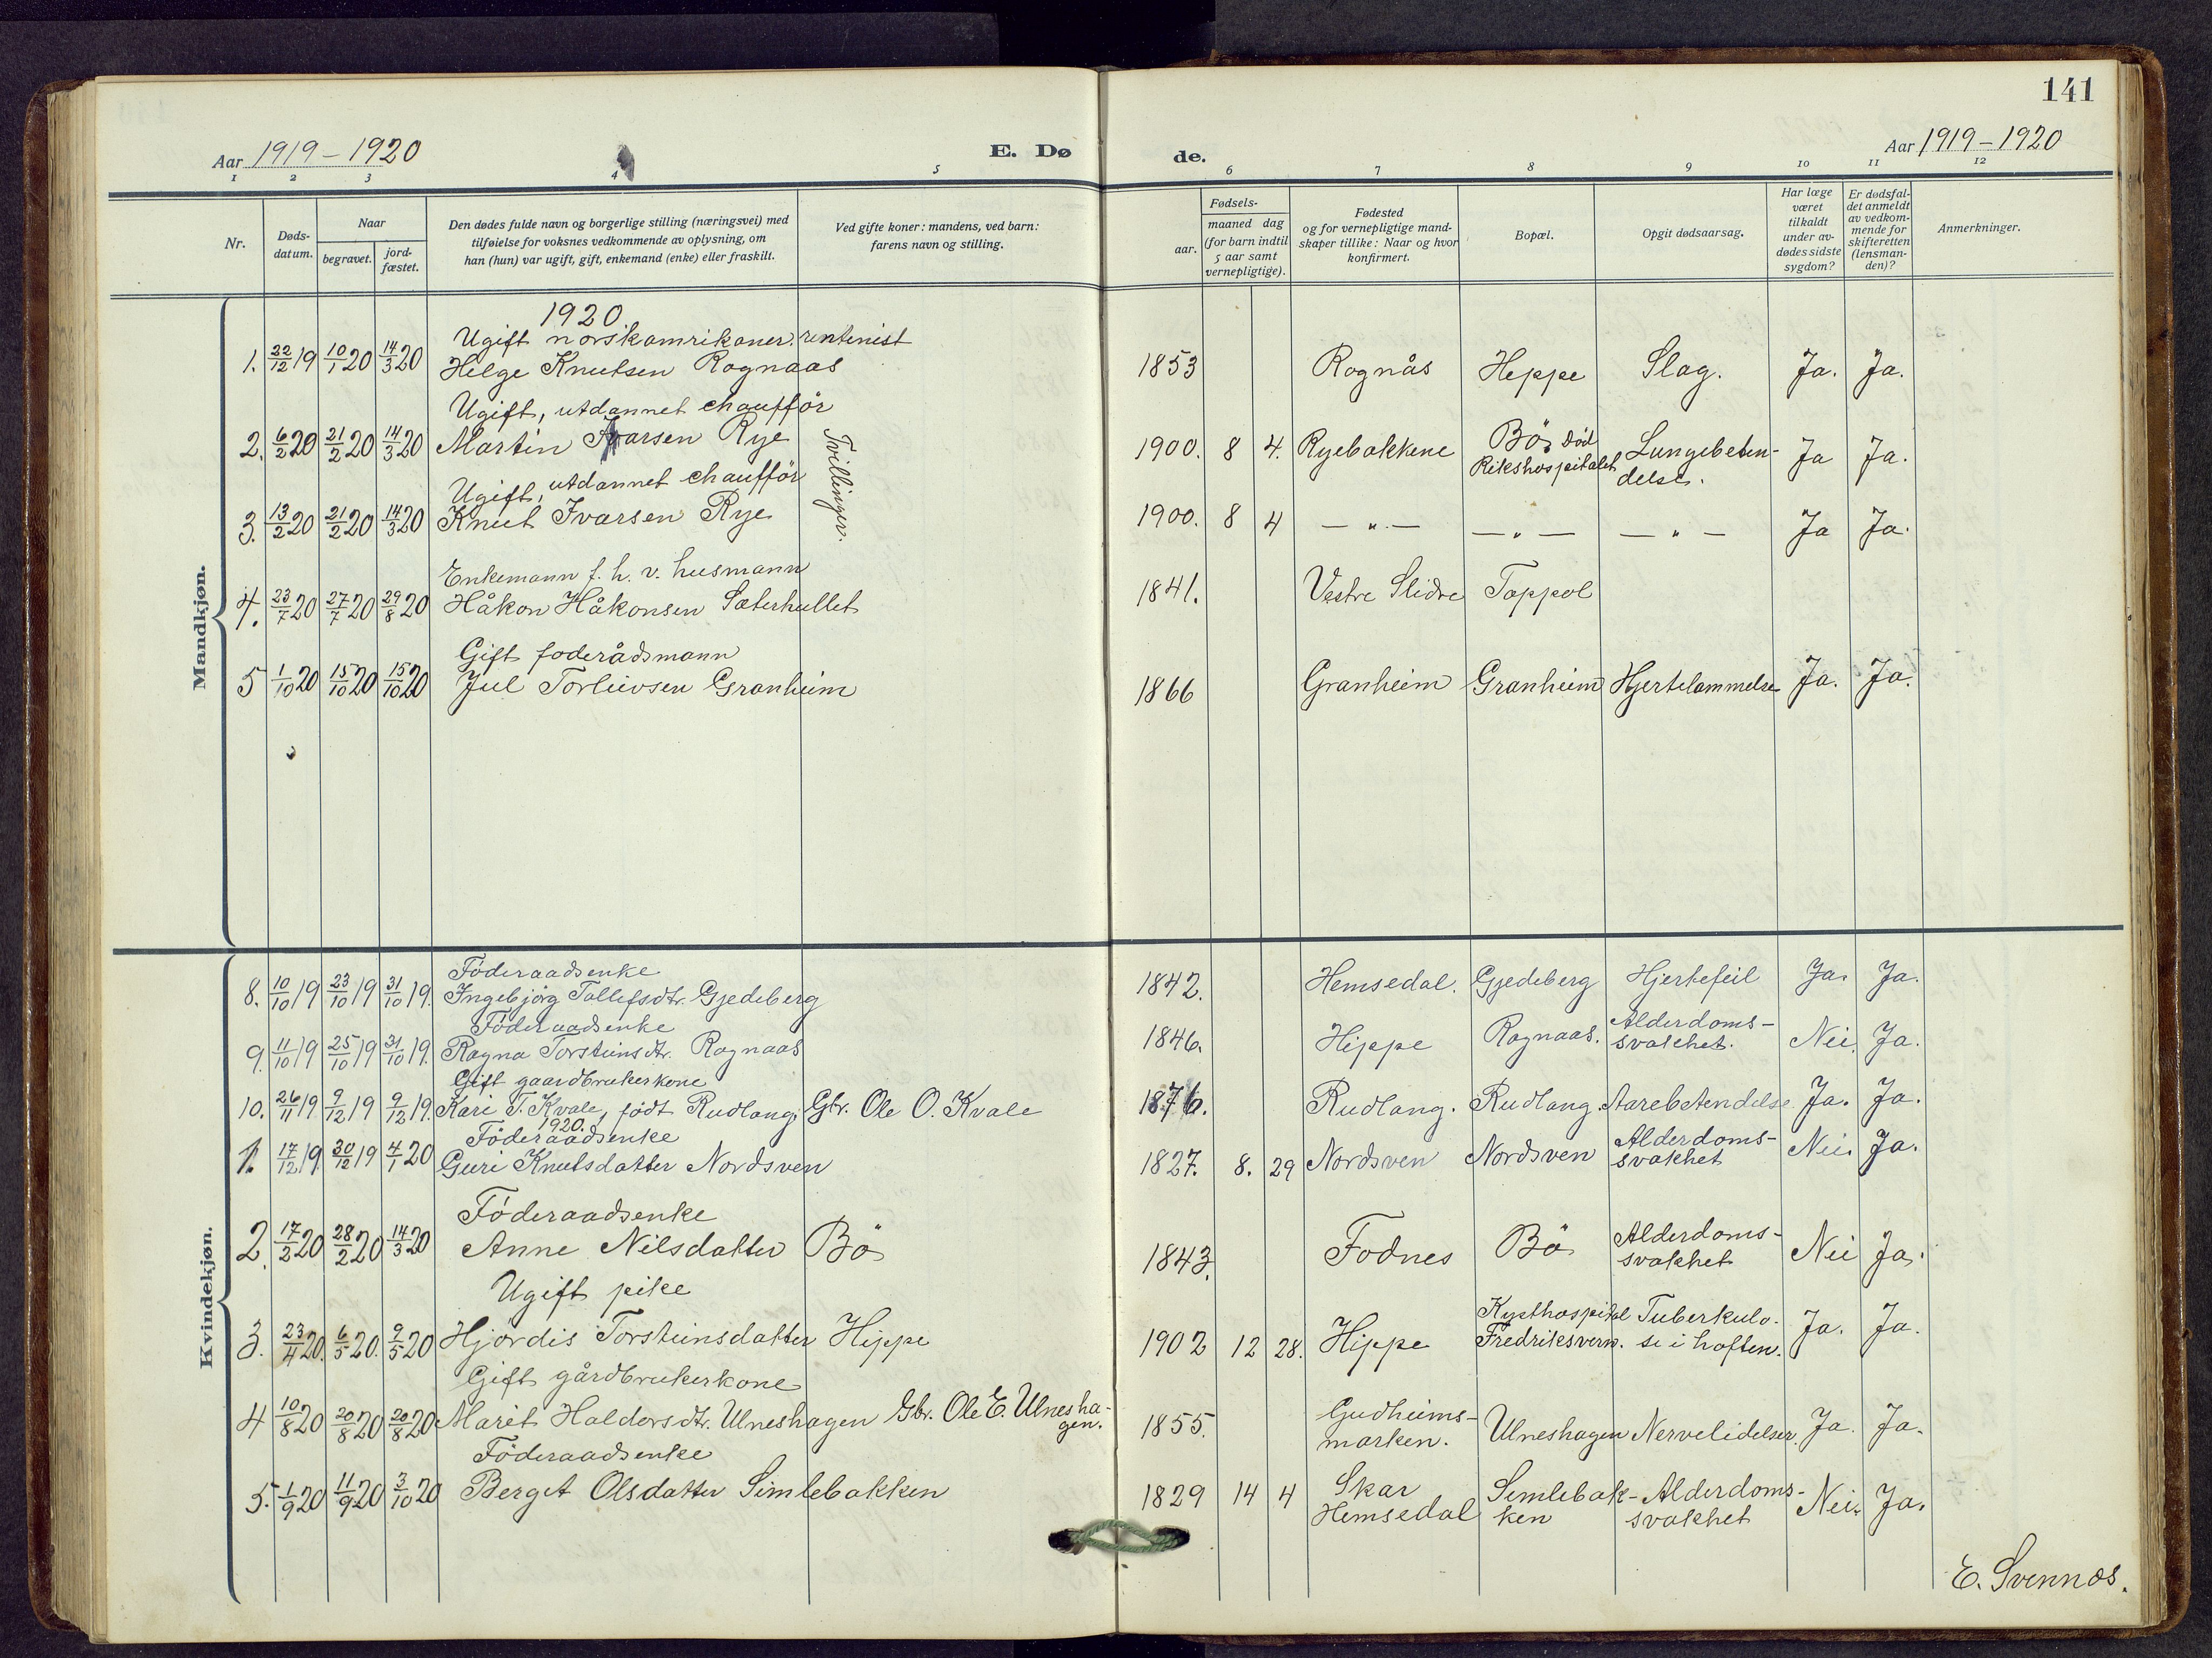 141
Aar 1919-1920 E. Dø de. Aar 1919-1920
1 2 3 4 5 6 7 8 9 10 11 12
Nr.
Døds-
datum.
Naar
begravet.
jord-
fæstet.
Den dødes fulde navn og borgerlige stilling (næringsvei) med
tilføielse for voksnes vedkommende av oplysning, om
han (hun) var ugift, gift, enkemand (enke) eller fraskilt.
Ved gifte koner: mandens, ved barn:
farens navn og stilling.
Fødsels-
aar.
maaned dag
(for barn indtil
5 aar samt
vernepligtige).
Fødested
og for vernepligtige mand-
skaper tillike: Naar og hvor
konfirmert.
Bopæl.
Opgit dødsaarsag.
Har læge
været
tilkaldt
under av-
dødes sidste
sygdom?
Er dødsfal-
det anmeldt
av vedkom-
mende for
skifteretten
(lensman-
den)?
Anmerkninger.
Mandkjøn.
1920
Ugift norskamrikaner, rentenist
1. 22/12 19 10/1 20 14/3 20 Helge Knutsen Rognaas 1853 Rognås Heppe Slag. Ja. Ja.
Ugift, utdannet chaufför
2. 6/2 20 21/2 20 14/3 20 Martin Ivarsen Rye 1900. 8 4. Ryebakkene Bö, död Rikshospitalet Lungebeten-
delse. Ja Ja.
Tvillinger.
Ugift, utdannet chaufför
3. 13/2 20 21/2 20 14/3 20 Knut Ivarsen Rye 1900. 8 4 — " — — " — — " — Ja Ja.
Enkemann f. h. v. husmann
4. 23/7 20 27/7 20 29/8 20 Håkon Håkonsen Sæterhullet 1841. Vestre Slidre Toppol
Gift foderådsmann
5 1/10 20 15/10 20 15/10 20 Jul Torleivsen Granheim 1866 Granheim Granheim Hjertelammelse Ja. Ja.
Kvindekjøn.
Föderaadsenke
8. 10/10 19 23/10 19 31/10 19. Ingebjörg Tollefsdtr. Gjedeberg 1842. Hemsedal. Gjedeberg Hjertefeil Ja. Ja.
Föderaadsenke
9. 11/10 19 25/10 19 31/10 19. Ragna Torsteinsdtr. Rognaas 1846. Hippe Rognaas. Alderdoms-
svakhet. Nei. Ja.
Gift gaardbrukerkone
10. 26/11 19 9/12 19 9/12 19. Kari T. Kvale, född Rudlang, Gbr. Ole O. Kvale 1876. Rudlang. Rudlang. Aarebetendelse Ja. Ja.
1920.
Föderaadsenke
1. 17/12 19 30/12 19 4/1 20 Guri Knutsdatter Nordsven 1827. 8. 29 Nordsven Nordsven Alderdoms-
svakhet Nei. Ja.
Föderaadsenke
2. 17/2 20 28/2 20 14/3 20 Anne Nilsdatter Bö 1843. Fodnes Bö Alderdoms-
svakhet Nei Ja.
Ugift pike
3. 23/4 20. 6/5 20. 9/5 20 Hjördis Torsteinsdatter Hippe 1902 12 28. Hippe Kysthospital Fredriksvern. Tuberkulo-
se i hoften. Ja. Ja.
Gift gårdbrukerkone
4 10/8 20 20/8 20 20/8 20 Marit Haldorsdtr. Ulneshagen Gbr. Ole E. Ulnesha-
gen. 1855. Gudheims-
marken. Ulneshagen Nervelidelser. Ja. Ja.
Föderaadsenke
5. 1/9 20 11/9 20 3/10 20 Berget Olsdatter Simlebakken 1829 14 4 Skar
Hemsedal Semlebak-
ken Alderdoms-
svakhet Nei. Ja.
E. Svennæs.